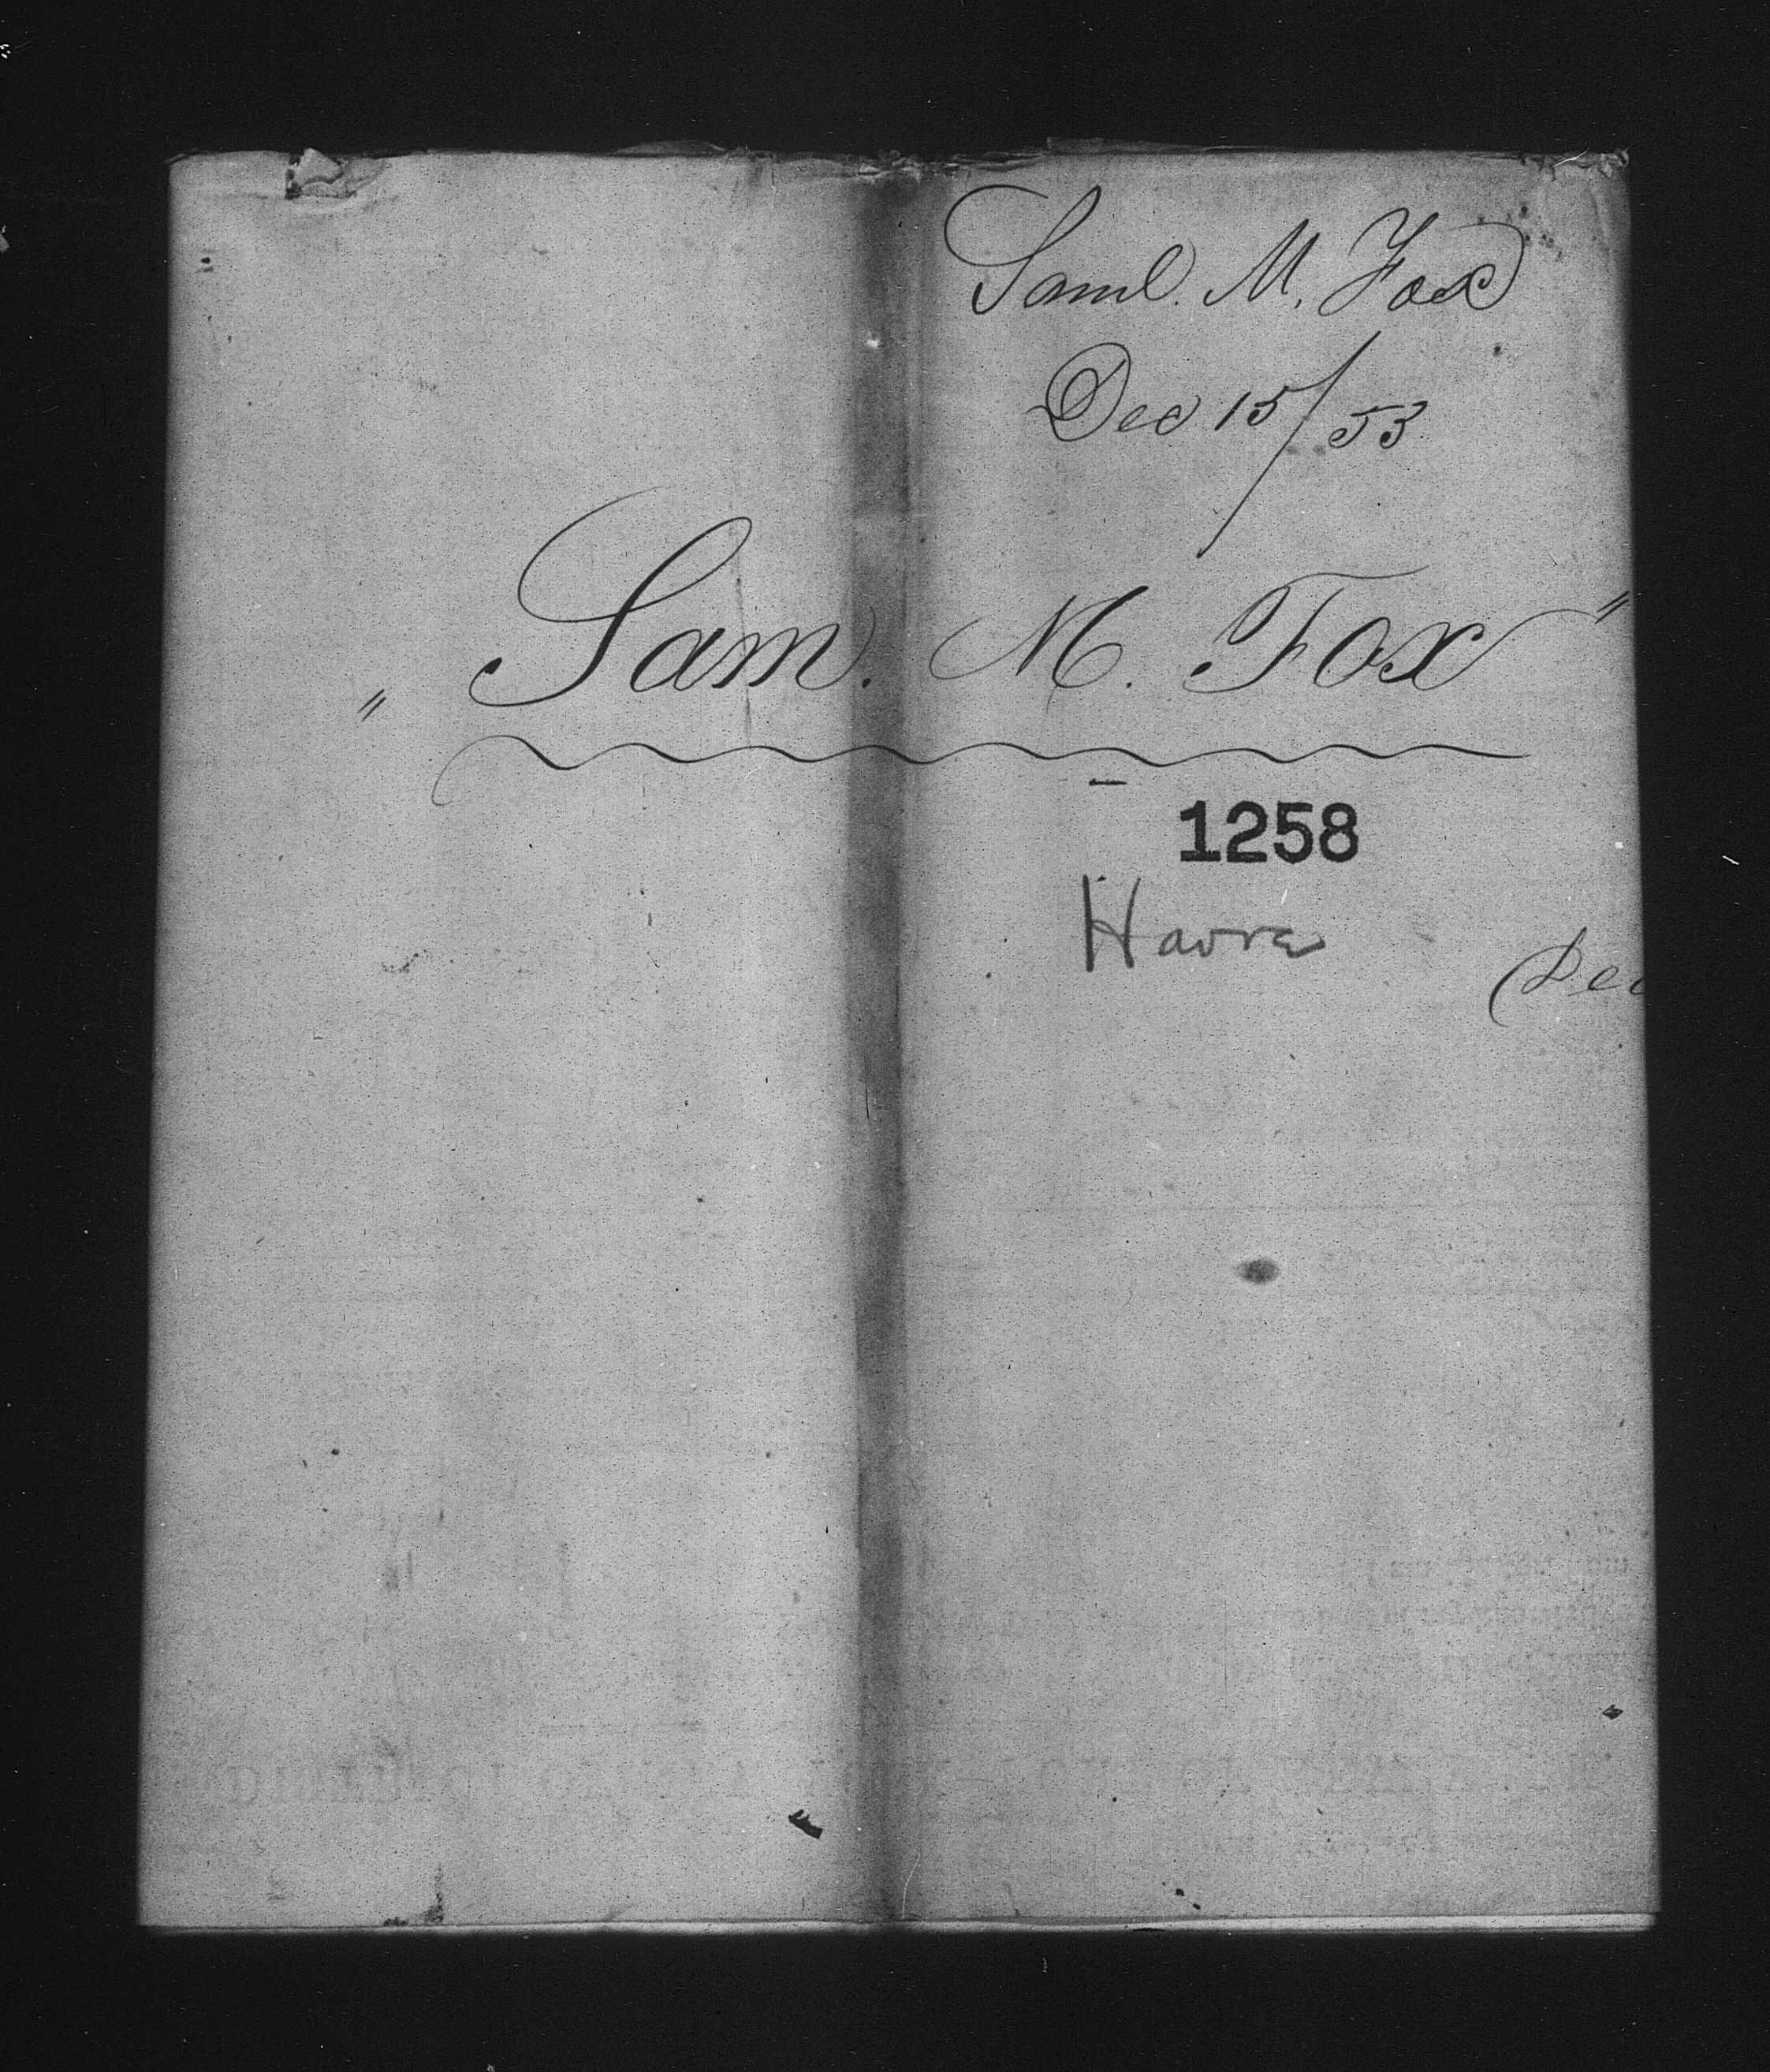 Saml. M. Fox
Dec 15/53
" Sam. M. Fox "
1258
Havre
Dec